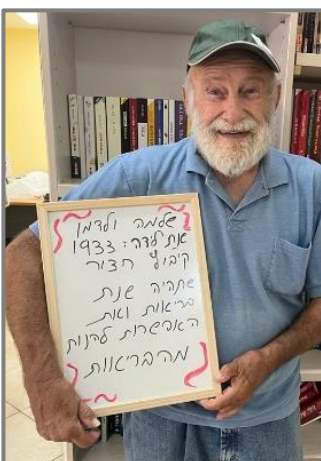 שלמה ולדמן
שנת לידה: 1933
קיבוץ חציר
שתהיה שנת
בריאות ואת
האפשרות להנות
מהבריאות